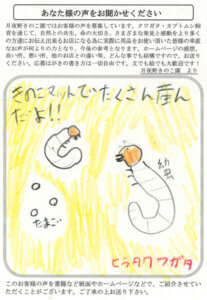 あなた様の声をお聞かせください
月夜野きのこ園ではお客様の声を募集しています。クワガタ・カブトムシ飼
育を通じて、自然との共生、命の大切さ、さまざまな発見と感動をより多く
の方達にお伝え出来るお店になる為に実際に用品をお使い頂いた皆様の率直
なお声が何よりの力となり、今後の参考となります。ホームページの感想、
良い所、悪い所、他のお店との違い等、どんな事でも結構ですので、お送り
ください。応募はがきの書き方は一切自由です。文でも絵でも大歓迎です！
月夜野きのこ園 より
きのこマットでたくさん産ん
だよ!!
幼虫
たまご
ヒラタクワガタ
このお客様の声を書籍など紙面やホームページなどで、ご紹介させていた
だくことがございます。ご了承の上お送り下さい。